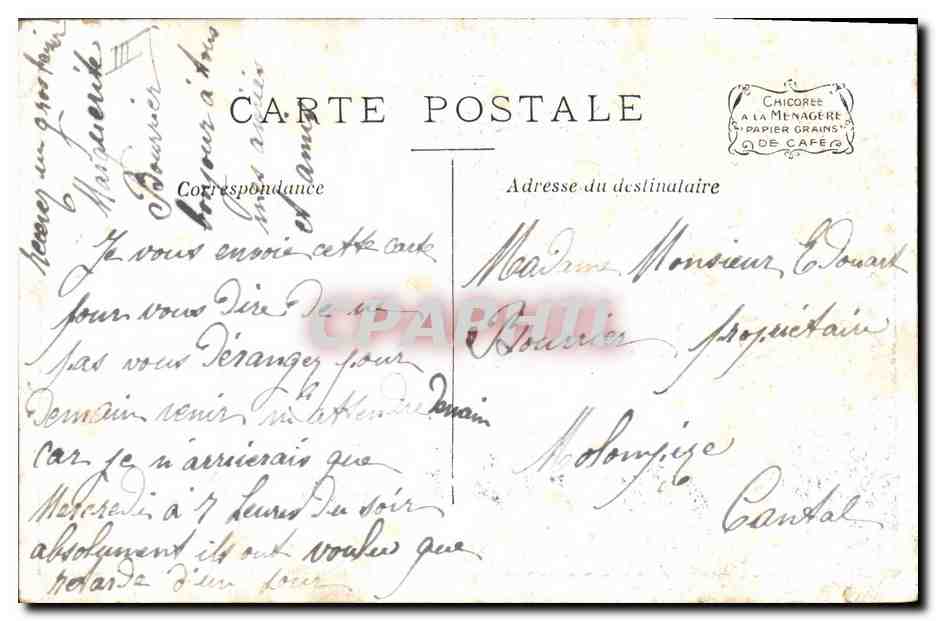 CARTE POSTALE
CHICORÉE
A LA MÉNAGÈRE
PAPIER GRAINS
DE CAFÉ
Correspondance
Je vous envoie cette carte
pour vous dire de ne
pas vous dérangez pour
demain venir m'attendre demain
car je n'arriverais que
Mercredi à 7 heures du soir
absolument ils ont voulu que
retarde d'un jour
recevez un gros baiser
Marguerite
Bouvier
bonjour à tous
mes amies
et amis
III
Adresse du destinataire
Madame Monsieur Edouart
Bouvier propriétaire
Molompize
Cantal
CPARHII